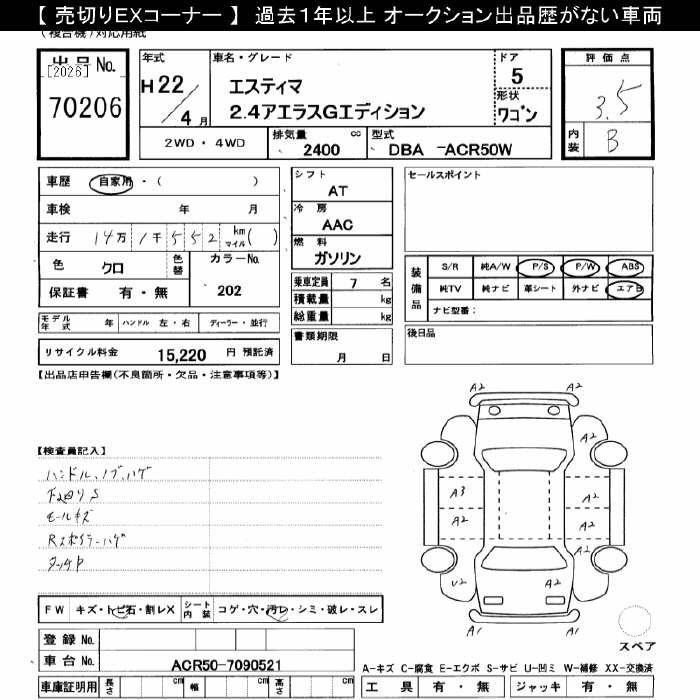 【 売切りEXコーナー 】 過去1年以上 オークション出品歴がない車両
(複合機)対応用紙
出品 No.
[2026]
70206
年式
H 22 / 4 月
車名・グレード
エスティマ
2.4アエラスGエディション
ドア
5
形状
ワゴン
評価点
3.5
内装
B
2WD ・ 4WD
排気量
cc
2400
型式
DBA -ACR50W
車歴
自家用 ・ ( )
車検 年 月
走行 14万 1千 5 5 2 km マイル ( )
色 クロ
色替
カラーNo.
202
保証書 有 ・ 無
シフト
AT
冷房
AAC
燃料
ガソリン
乗車定員 7 名
積載量 kg
総重量 kg
書類期限
月 日
セールスポイント
装備品
S/R 純A/W P/S P/W ABS
純TV 純ナビ 革シート 外ナビ エアB
ナビ型番:
後日品
モデル年式 年 ハンドル 左 ・ 右 ディーラー ・ 並行
リサイクル料金 15,220 円 預託済
【出品店申告欄(不良箇所・欠品・注意事項等)】
【検査員記入】
ハンドル、ノブ、ハゲ
下廻りS
モールキズ
Rスポイラーハゲ
タッチP
A2 A2
A2
A3 A2
A2 A2
U2 A2
A1 A1
FW キズ・トビ石・割レX
シート内装 コゲ・穴・汚レ・シミ・破レ・スレ
登録 No.
車台 No. ACR50-7090521
車庫証明用 長さ cm 幅 cm 高さ cm
スペア
A-キズ C-腐食 E-エクボ S-サビ U-凹ミ W-補修 XX-交換済
工具 有 ・ 無 ジャッキ 有 ・ 無